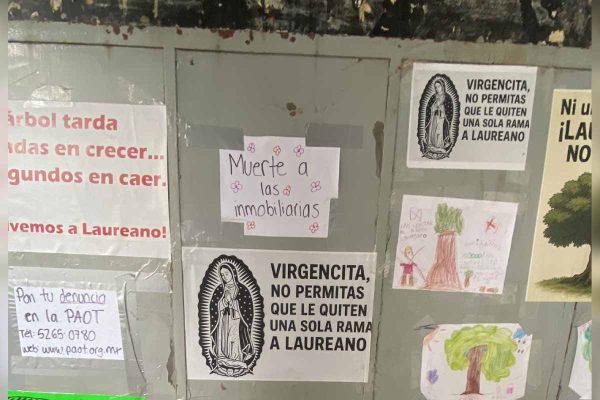 árbol tarda
adas en crecer...
gundos en caer.
vemos a Laureano!
Pon tu denuncia
en la PAOT
Tel: 5265-0780
web www.paot.org.mx
Muerte a
las
inmobiliarias
VIRGENCITA,
NO PERMITAS
QUE LE QUITEN
UNA SOLA RAMA
A LAUREANO
VIRGENCITA,
NO PERMITAS
QUE LE QUITEN
UNA SOLA RAMA
A LAUREANO
Ni u
¡LAU
NO